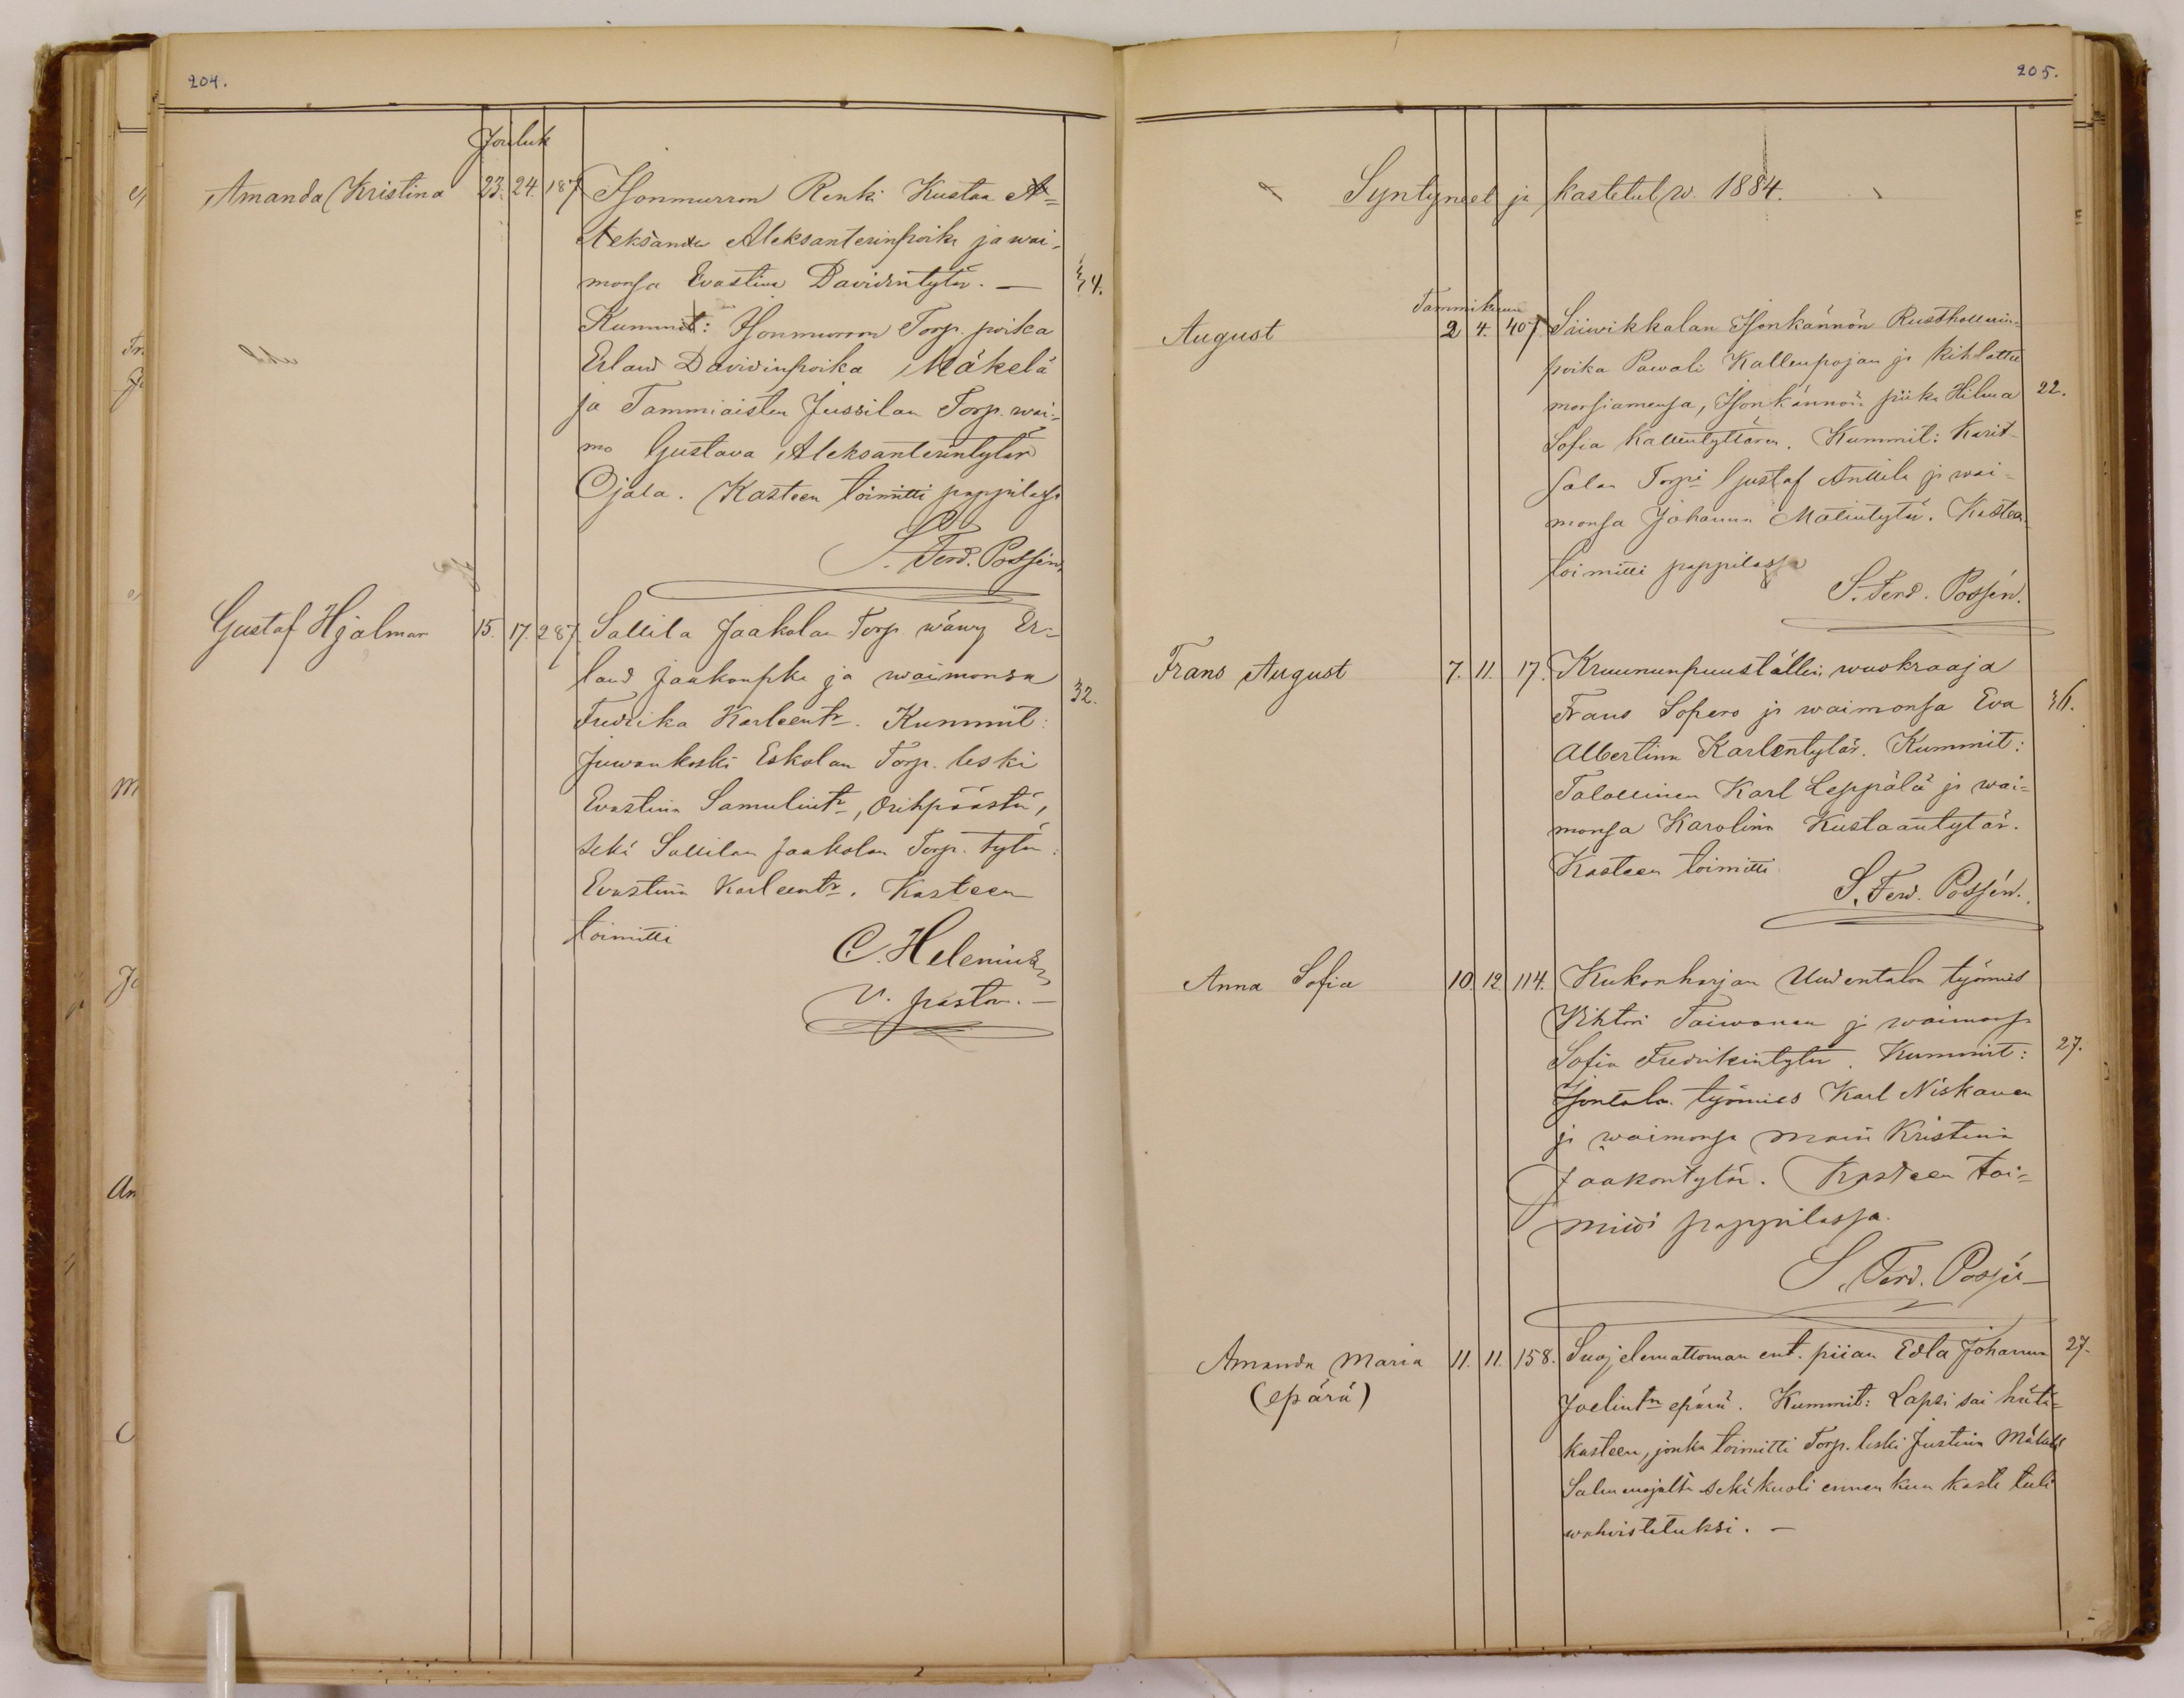 204.
Jouluk
Amanda Kristina 23. 24. 187 Isonmurron Renki Kustaa A=
leksander Aleksanterinpoika ja wai-
monsa Evastina Davidintytär. — 34.
Kummit: Isonmurron Torp. poika
Erland Davidinpoika Mäkelä
ja Tammiaisten Jussilan Torp. wai-
mo Gustava Aleksanterintytär
Ojala. Kasteen toimitti pappilassa
S. Ferd. Possén.
Gustaf Hjalmar 15. 17. 287. Sallila Jaakolan Torp wäwy Er=
land Jaakonpka ja waimonsa 32.
Fredrika Karleentr. Kummit:
Juwankoski Eskolan Torp. leski
Evastina Samulintr, Orihpäästä,
sekä Sallilan Jaakolan Torp. tytär:
Evastina Karleentr. Kasteen
toimitti
C. Helenius
V. pastor. —
205.
Syntyneet ja kastetut w. 1884.
Tammikuun
August 2 4. 407. Isonkännön Rusthollarin-
poika Pawali Kallenpojan ja kihlattu
morsiamensa, Isonkännön piika Hilma 22.
Sofia Kallentyttären. Kummit: Karit-
salan Torpi Gustaf Anttila ja wai-
monsa Johanna Matintytär. Kasteen
toimitti pappilassa
S. Ferd. Possén.
Frans August 7. 11. 17. Kruununpuuställin wuokraaja
Frans Sopero ja waimonsa Eva 36.
Albertina Karlentytär. Kummit:
Talollinen Karl Leppälä ja wai-
monsa Karolina Kustaantytär.
Kasteen toimitti
S. Ferd. Possén.
Anna Sofia 10. 12. 114. Kukonharjan Uudentalon työmies
Wihtori Taiwonen ja waimonsa
Sofia Fredrikintytär. Kummit: 27.
Isontalon työmies Karl Niskanen
ja waimonsa Maria Kristiina
Jaakontytär. Kasteen toi-
mitti pappilassa.
S. Ferd. Possén
Amanda Maria 11. 11. 158. Suojelemattoman ent. piian Edla Johanna 27.
(epärä) Joelintr epärä. Kummit: Lapsi sai hätä-
kasteen, jonka toimitti Torp. leski Justina Mäkelä
Salmenojalta sekä kuoli ennen kun kaste tuli
wahvistetuksi. —